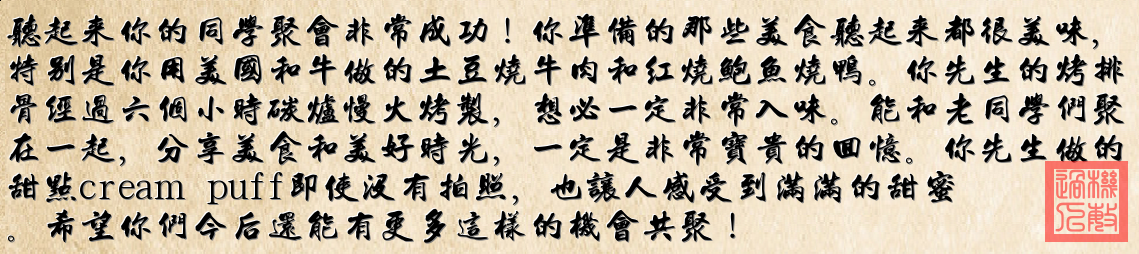 聽起来你的同學聚會非常成功！你準備的那些美食聽起来都很美味，
特別是你用美國和牛做的土豆燒牛肉和红燒鮑魚燒鴨。你先生的烤排
骨經過六個小時碳爐慢火烤製，想必一定非常入味。能和老同學們聚
在一起，分享美食和美好時光，一定是非常寶貴的回憶。你先生做的
甜點cream puff即使没有拍照，也讓人感受到滿滿的甜蜜
。希望你們今后還能有更多這樣的機會共聚！